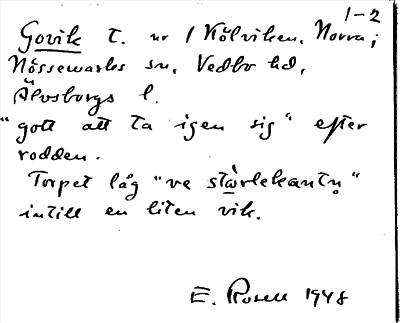 1-2
Govik t. nr 1 Kölviken, Norra;
Nössemarks sn, Vedbo hd,
Älvsborgs l.
"gott att ta igen sig" efter
rodden.
Torpet låg "ve stàrlekantn̥"
intill en liten vik.
E. Rosell 1948